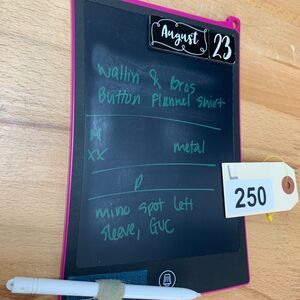 August 23
Wallin & Bros
Button Flannel Shirt
M
xx metal
P
mino spot left
sleeve, GVC
L
250